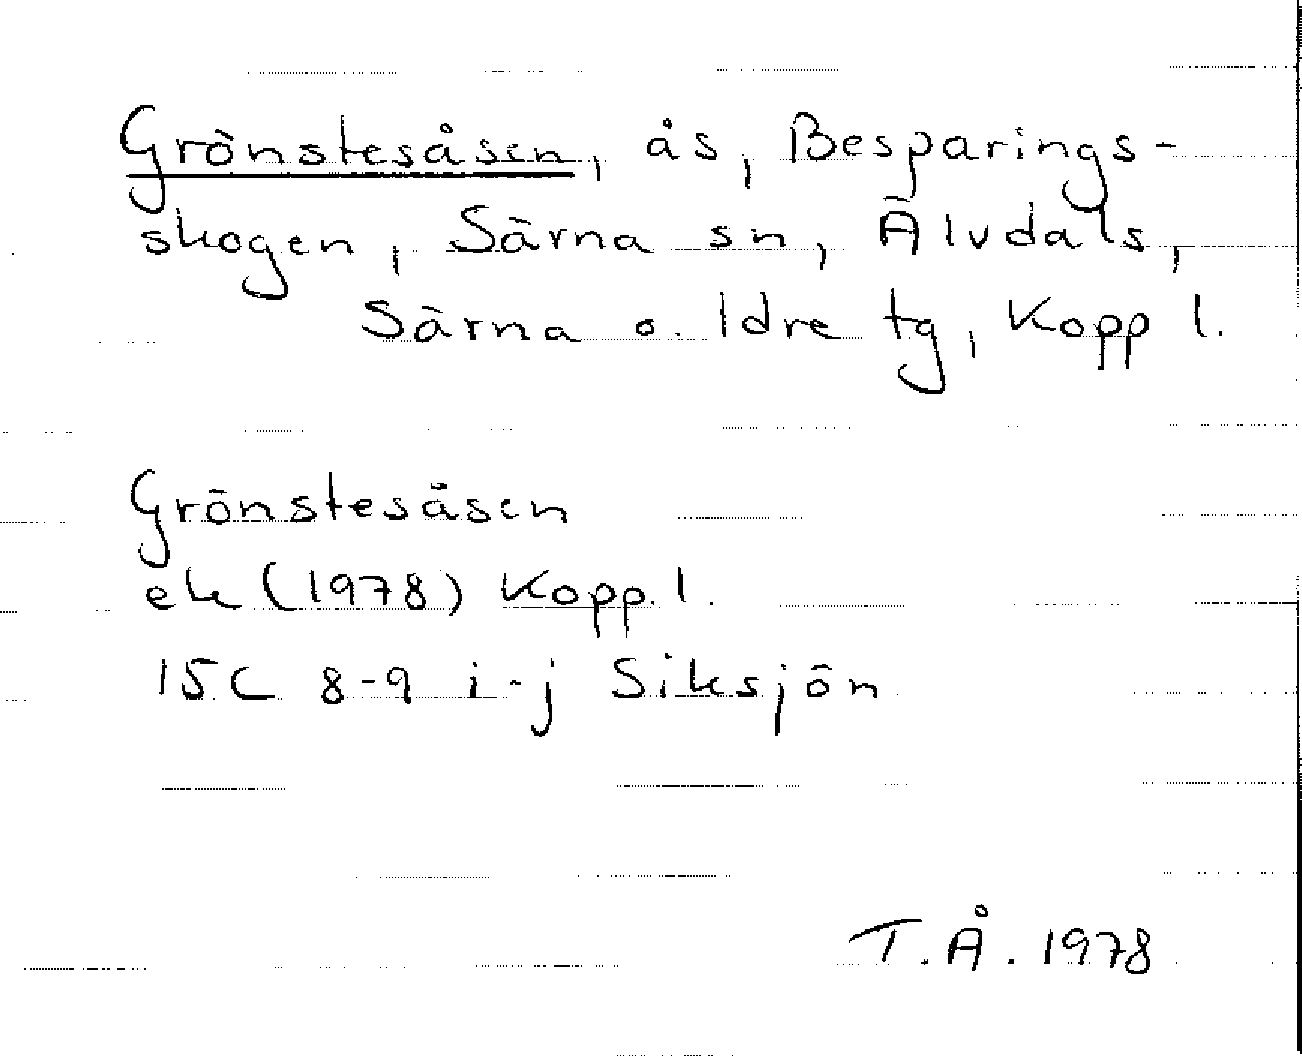 Grönstesåsen, ås, Besparings-
skogen, Särna sn, Älvdals,
Särna o. Idre tg, Kopp l.
Grönstesåsen
ek (1978) Kopp. l.
15C 8-9 i-j Siksjön
T.Å. 1978